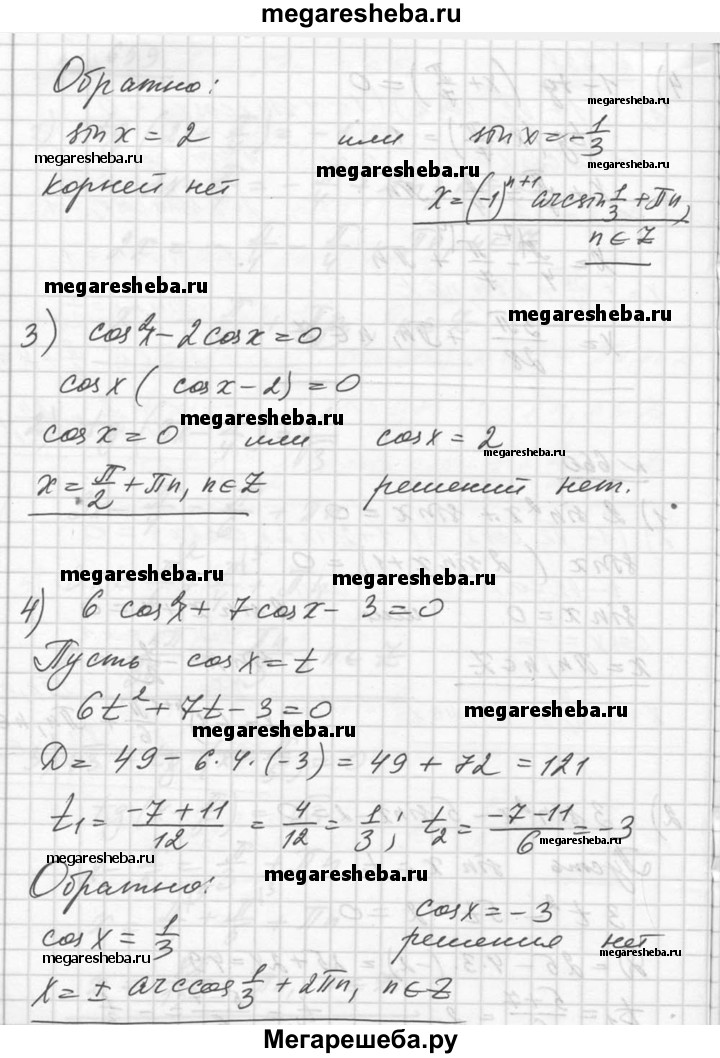 megaresheba.ru
Обратно:
sin x = 2 или sin x = -1/3
megaresheba.ru
megaresheba.ru
megaresheba.ru
корней нет x = (-1)^(n+1) arcsin 1/3 + πn,
megaresheba.ru
n ∈ Z
megaresheba.ru
megaresheba.ru
3) cos²x - 2cosx = 0
cosx ( cosx - 2) = 0
megaresheba.ru
cosx = 0 или cosx = 2
megaresheba.ru
x = π/2 + πn, n ∈ Z решений нет.
megaresheba.ru
megaresheba.ru
4) 6 cos²x + 7cosx - 3 = 0
Пусть cosx = t
6t² + 7t - 3 = 0
megaresheba.ru
megaresheba.ru
D = 49 - 6·4·(-3) = 49 + 72 = 121
t₁ = (-7+11)/12 = 4/12 = 1/3; t₂ = (-7-11)/6 = -3
megaresheba.ru
megaresheba.ru
megaresheba.ru
Обратно:
cosx = 1/3 cosx = -3
решения нет
megaresheba.ru
megaresheba.ru
x = ± arccos 1/3 + 2πn, n ∈ Z
Мегарешеба.ру